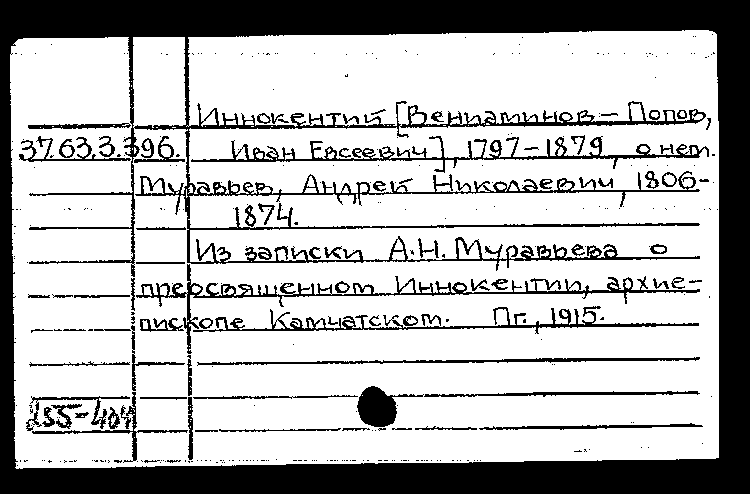 Иннокентий [Вениаминов – Попов,
37.63.3.396. Иван Евсеевич], 1797–1879, о нем.
Муравьев, Андрей Николаевич, 1806–
1874.
Из записки А.Н. Муравьева о
преосвященном Иннокентии, архие–
пископе Камчатском. Пг., 1915.
255–404